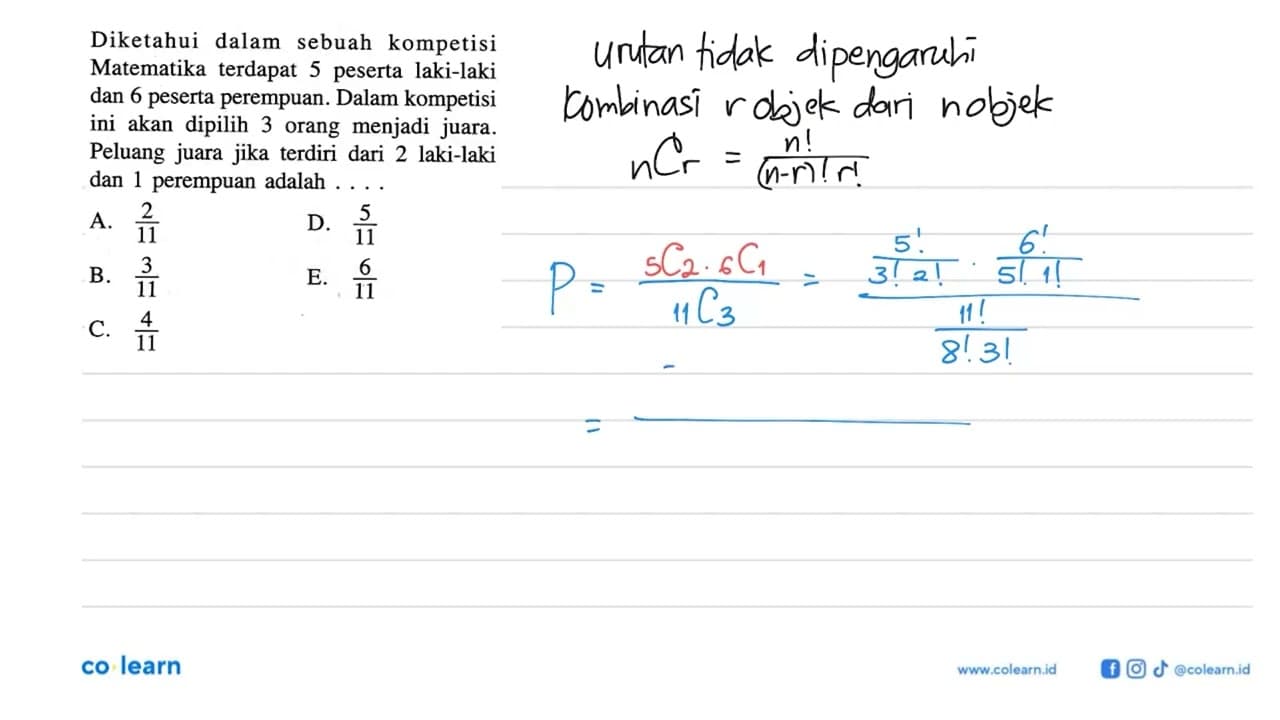 Diketahui dalam sebuah kompetisi
Matematika terdapat 5 peserta laki-laki
dan 6 peserta perempuan. Dalam kompetisi
ini akan dipilih 3 orang menjadi juara.
Peluang juara jika terdiri dari 2 laki-laki
dan 1 perempuan adalah . . . .
A. 2/11
B. 3/11
C. 4/11
D. 5/11
E. 6/11
urutan tidak dipengaruhi
kombinasi r objek dari n objek
nCr = n!/((n-r)! r!)
P = (5C2 . 6C1)/(11C3) = (5!/(3! 2!) . 6!/(5! 1!))/(11!/(8! 3!))
=
co learn
www.colearn.id
@colearn.id